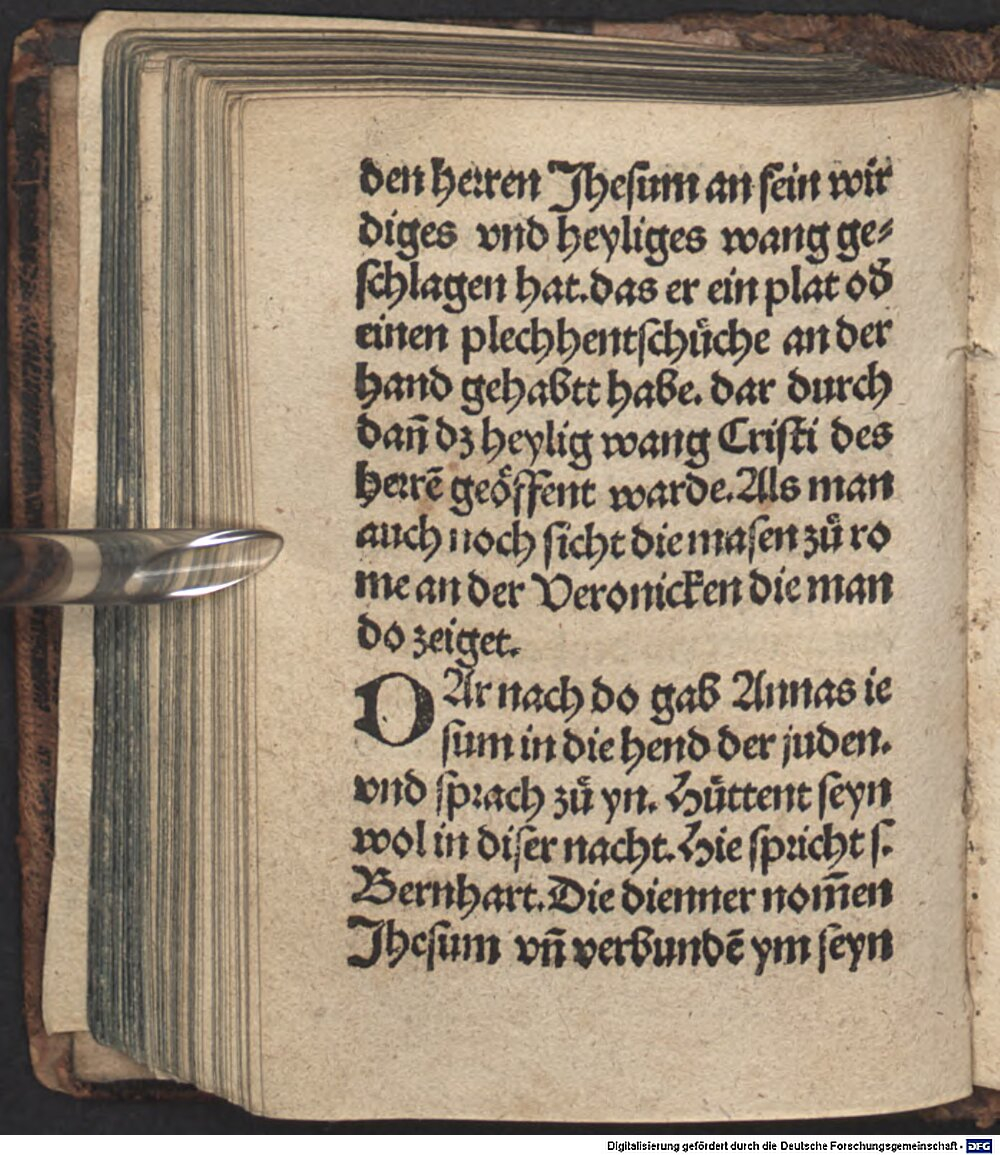 den herren Jheſum an ſein wir
diges vnd heyliges wang ge⸗
ſchlagen hat. das er ein plat od̄
einen plechhentſchuͤche an der
hand gehabtt habe. dar durch
dan̄ dz heylig wang Criſti des
herrē geoͤffent warde. Als man
auch noch ſicht die maſen zuͦ ro
me an der Veronicken die man
do zeiget.
DAr nach do gab Annas ie
ſum in die hend der juden.
vnd ſprach zuͦ yn. Huͤttent ſeyn
wol in diſer nacht. Hie ſpricht ſ.
Bernhart. Die dienner nom̄en
Jheſum vn̄ verbundē ym ſeyn
Digitalisierung gefördert durch die Deutsche Forschungsgemeinschaft - DFG